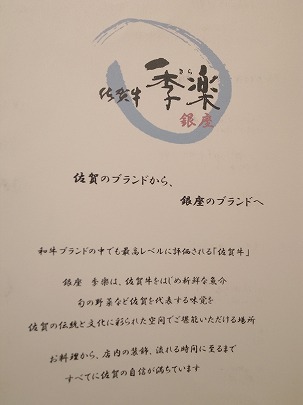 きら
佐賀牛 季楽
銀座
佐賀のブランドから、
銀座のブランドへ
和牛ブランドの中でも最高レベルに評価される「佐賀牛」
銀座 季楽は、佐賀牛をはじめ新鮮な魚介
旬の野菜など佐賀を代表する味覚を
佐賀の伝統と文化に彩られた空間でご堪能いただける場所
お料理から、店内の装飾、流れる時間に至るまで
すべてに佐賀の自信が満ちています